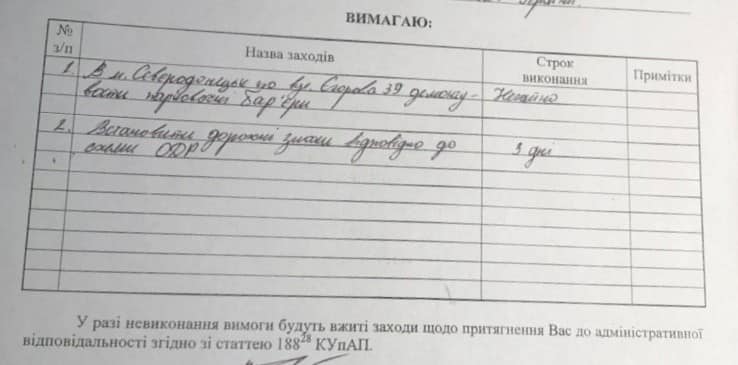 ВИМАГАЮ:
№ з/п
Назва заходів
Строк виконання
Примітки
1. В м. Сєвєродонецьк по вул. Єгорова 39 демонту-
вати паркувальні бар'єри
Негайно
2. Встановити дорожні знаки відповідно до
схеми ОДР
3 дні
У разі невиконання вимоги будуть вжиті заходи щодо притягнення Вас до адміністративної
відповідальності згідно зі статтею 188²⁸ КУпАП.